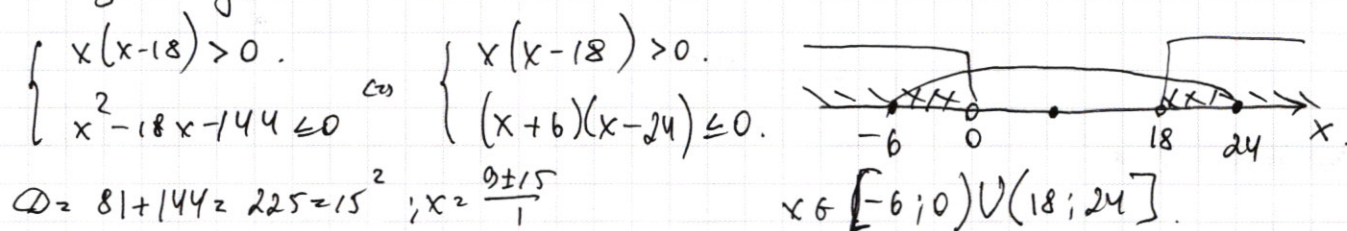 { x(x-18) > 0. ⇔ { x(x-18) > 0.
x² - 18x - 144 ≤ 0 (x+6)(x-24) ≤ 0.
-6 0 18 24 x
D = 81 + 144 = 225 = 15² ; x = (9±15)/1
x ∈ [-6; 0) ∪ (18; 24].